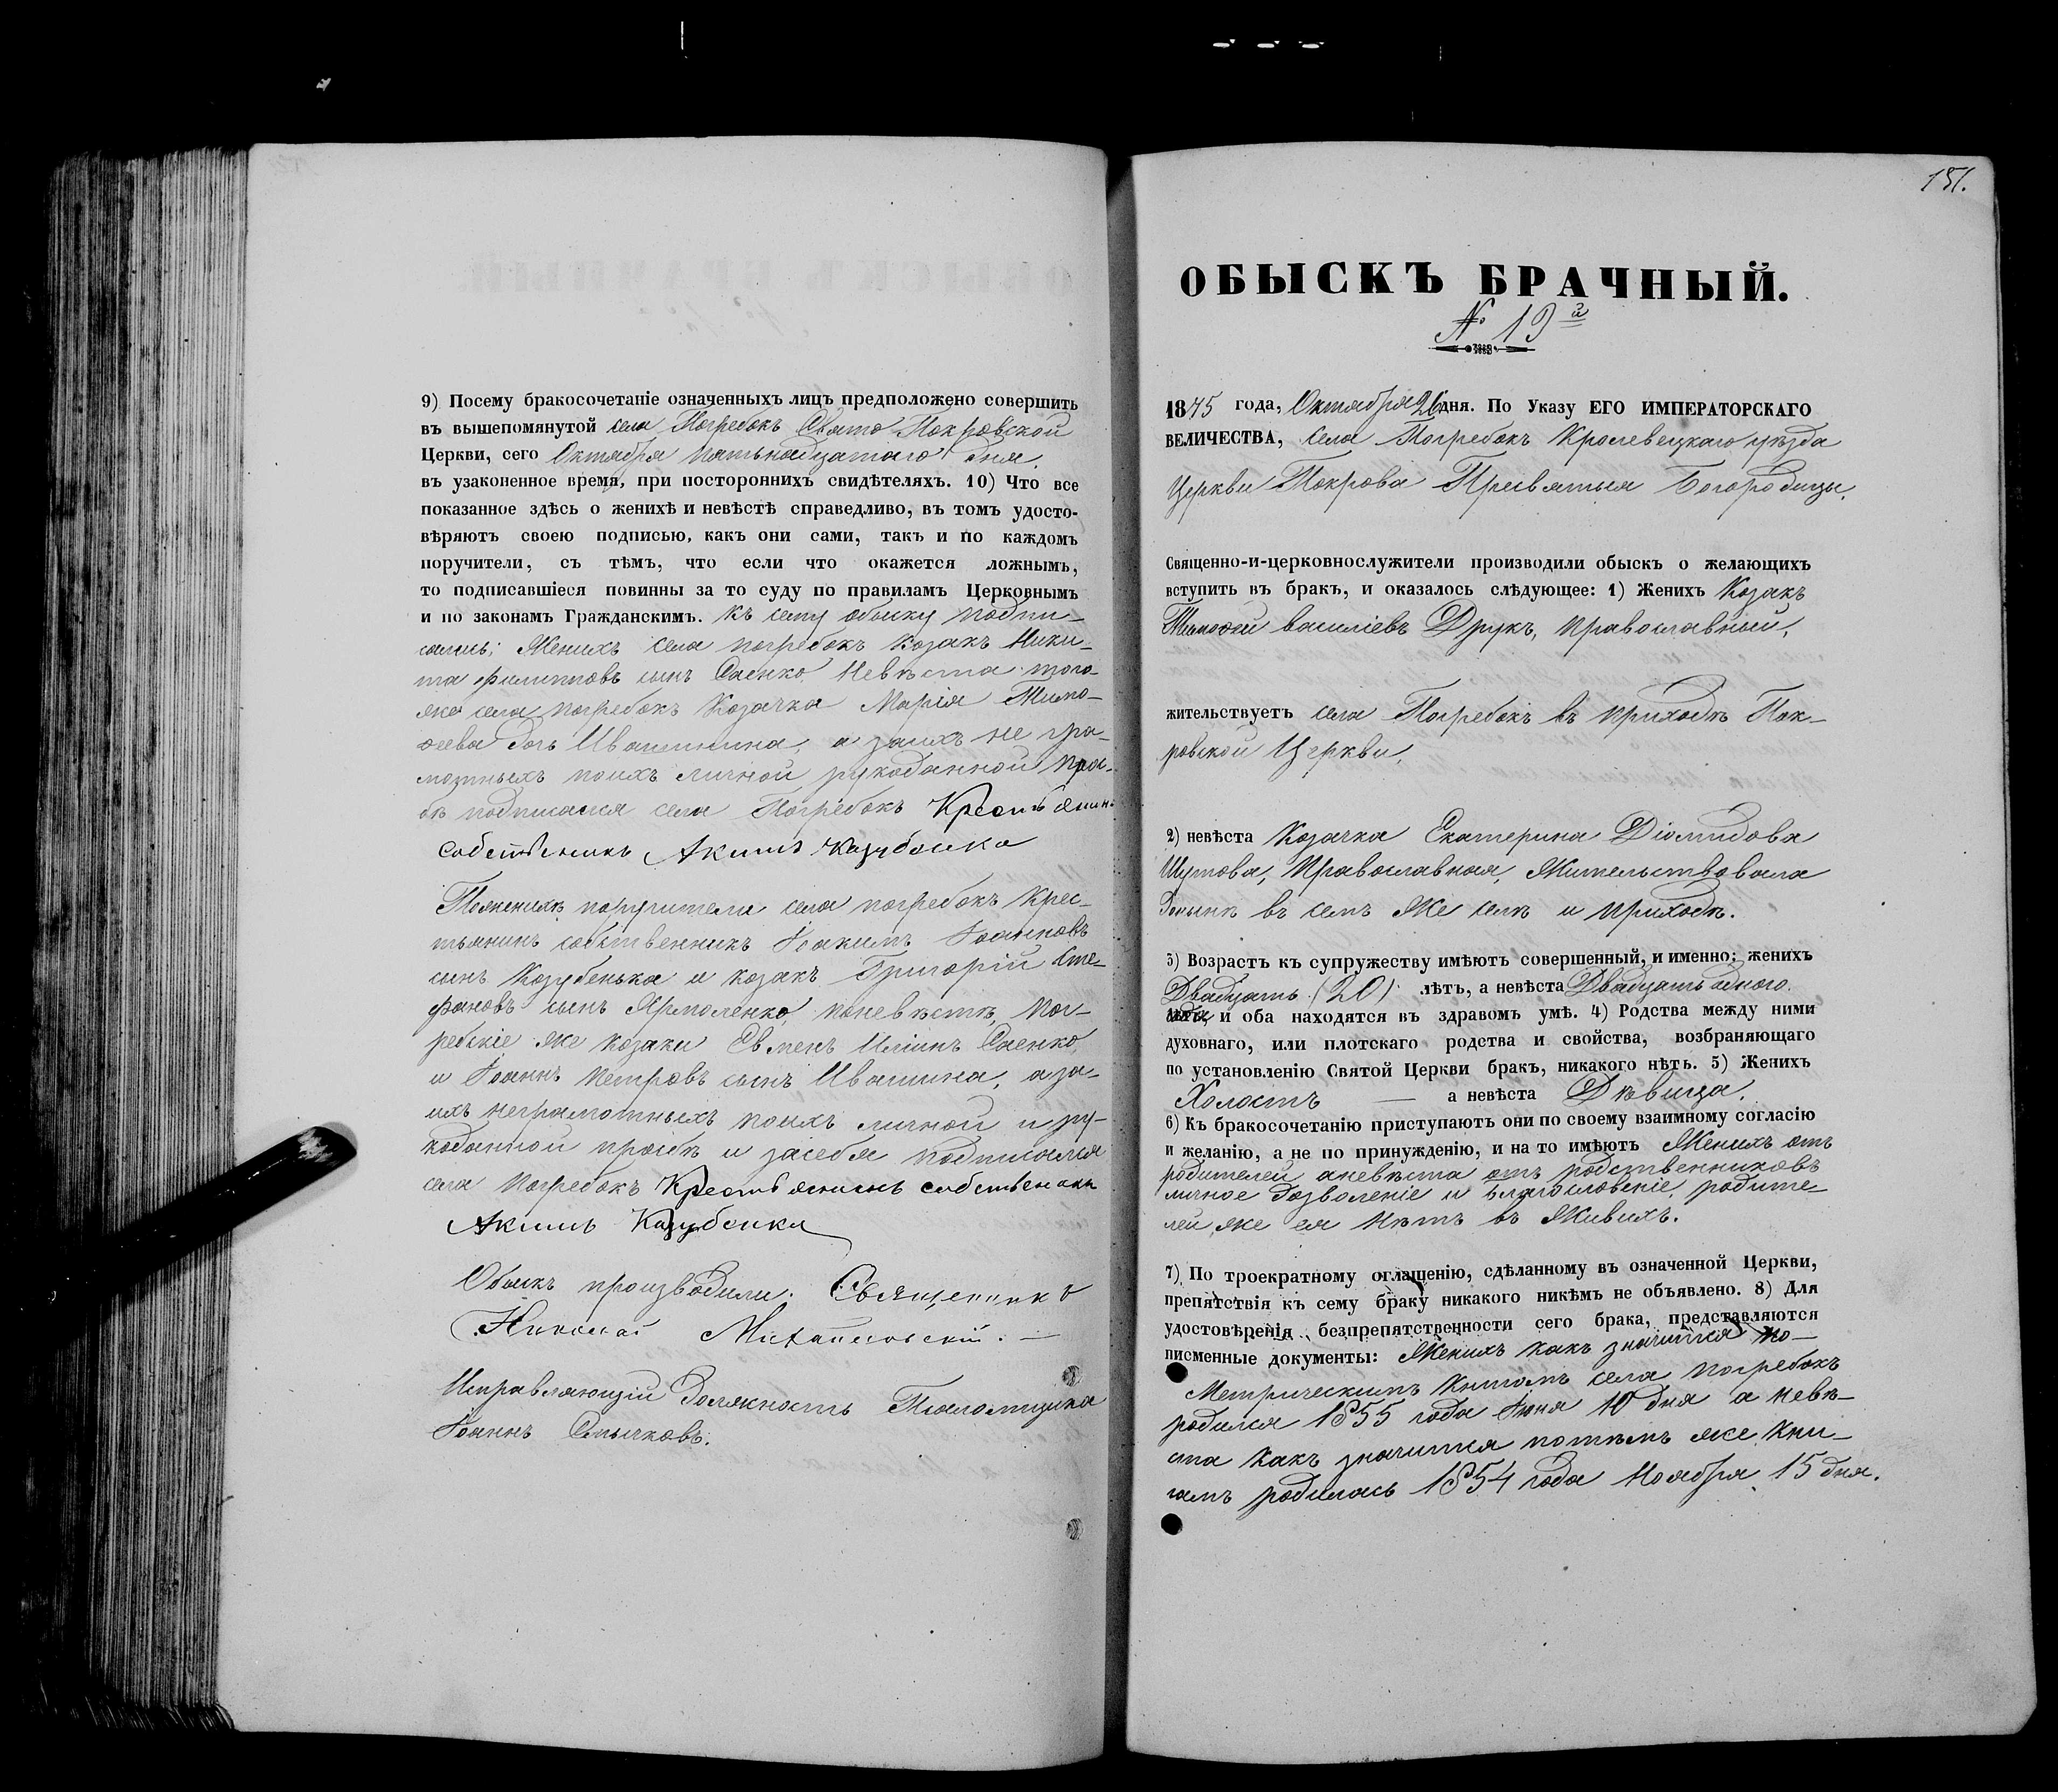 9) Посему бракосочетаніе означенныхъ лицъ предположено совершить
въ вышепомянутой села Погребокъ Свято Покровской
Церкви, сего Октября пятьнадцатого дня.
въ узаконенное время, при постороннихъ свидѣтеляхъ. 10) Что все
показанное здѣсь о женихѣ и невѣстѣ справедливо, въ томъ удосто-
вѣряютъ своею подписью, какъ они сами, такъ и по каждомъ
поручители, съ тѣмъ, что если что окажется ложнымъ,
то подписавшіеся повинны за то суду по правиламъ Церковнымъ
и по законамъ Гражданскимъ. Къ сему обыску подпи-
сались: Женихъ села погребокъ Козакъ Ники-
та филипповъ сынъ Саенко Невѣста того
же села погребокъ Козачка Марія Тимо-
ѳеева дочь Ивашинина, а за ихъ не гра-
мотныхъ по ихъ личной рукоданной прос-
бѣ подписался села Погребокъ Крестьянинъ
собственикъ Акимъ Казубенко
По женихѣ поручители села погребокъ Крес-
тьянинъ собственникъ Іоакимъ Іоанновъ
сынъ Козубенька и козакъ Григорій Сте-
фановъ сынъ Ярмоленко, по невѣстѣ, Пог-
ребскіе же козаки Евменъ Ильинъ Саенко,
и Іоаннъ Петровъ сынъ Ивашина, а за
ихъ неграмотныхъ по ихъ личной и ру-
коданной прозбѣ и за себя подписался
села Погребокъ Крестьянинъ собственикъ
Акимъ Казубенка
Обыскъ производили: Священникъ
Николай Михайловскій.
Исправляющій должность Псаломщика
Іоаннъ Смычковъ.
151.
ОБЫСКЪ БРАЧНЫЙ.
№ 19й
1875 года, Октября 26 дня. По Указу ЕГО ИМПЕРАТОРСКАГО
ВЕЛИЧЕСТВА, села Погребокъ Кролевецкаго уѣзда
Церкви Покрова Пресвятыя Богородицы.
Священно-и-церковнослужители производили обыскъ о желающихъ
вступить въ бракъ, и оказалось слѣдующее: 1) Женихъ Козакъ
Тимоѳей василіевъ Друкъ, православный,
жительствуетъ села Погребокъ въ приходѣ Пок-
ровской Церкви,
2) невѣста Козачка Екатерина Діомидова
Шутова, Православная, Жительствовала
донынѣ въ семъ же селѣ и приходѣ.
3) Возрастъ къ супружеству имѣютъ совершенный, и именно: женихъ
Двадцать (20) лѣтъ, а невѣста Двадцать одного
и оба находятся въ здравомъ умѣ. 4) Родства между ними
духовнаго, или плотскаго родства и свойства, возбраняющаго
по установленію Святой Церкви бракъ, никакого нѣтъ. 5) Женихъ
Холостъ — а невѣста Дѣвица.
6) Къ бракосочетанію приступаютъ они по своему взаимному согласію
и желанію, а не по принужденію, и на то имѣютъ Женихъ отъ
родителей а невѣста отъ родственниковъ
личное дозволеніе и благословеніе, родите-
лей же ея нѣтъ въ живихъ.
7) По троекратному оглашенію, сдѣланному въ означенной Церкви,
препятствія къ сему браку никакого никѣмъ не объявлено. 8) Для
удостовѣренія безпрепятственности сего брака, представляются
писменные документы: Женихъ какъ значится по-
Метрическимъ Книгамъ села погребокъ
родился 1855 года Іюня 10 дня а невѣ-
ста какъ значится по тѣмъ же кни-
гамъ родилась 1854 года Ноября 15 дня.